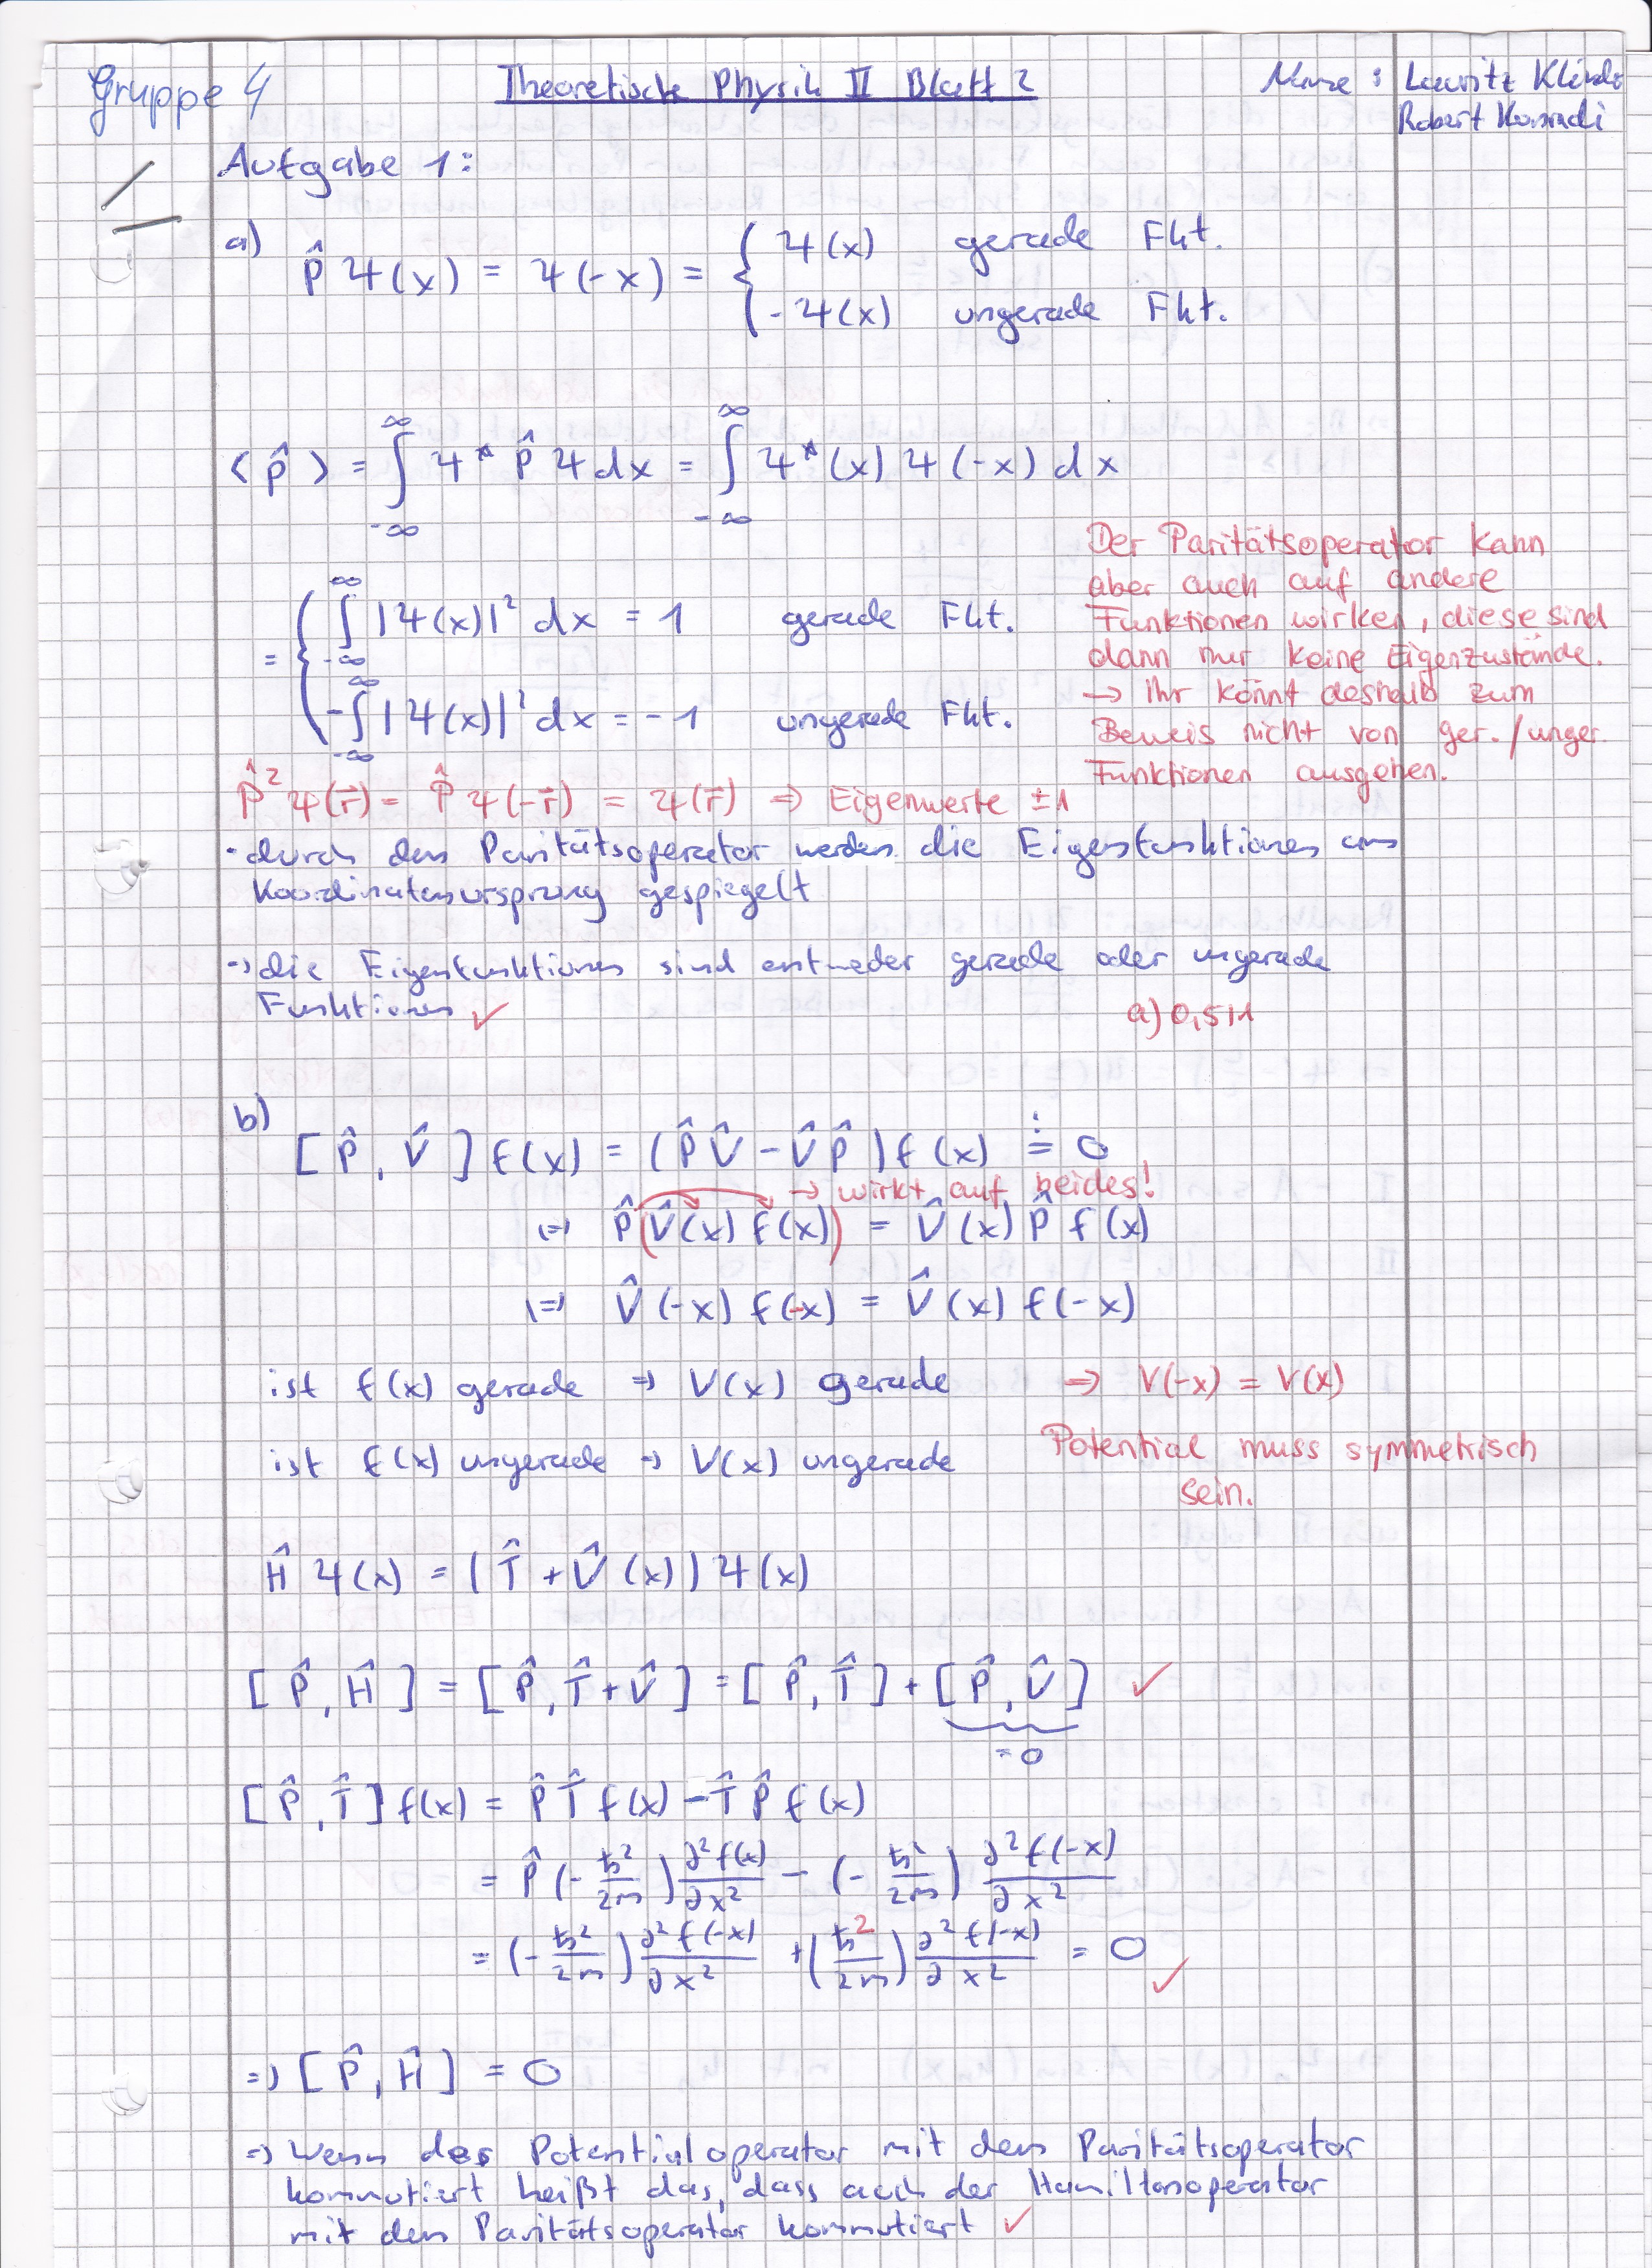 Gruppe 4
Theoretische Physik II Blatt 2
Name : Lauritz Klinde
Robert Konradi
Aufgabe 1:
a) P̂ Ψ(x) = Ψ(-x) = { Ψ(x) gerade Fkt.
-Ψ(x) ungerade Fkt.
⟨P̂⟩ = ∫_{-∞}^{∞} Ψ* P̂ Ψ dx = ∫_{-∞}^{∞} Ψ*(x) Ψ(-x) dx
= { ∫_{-∞}^{∞} |Ψ(x)|² dx = 1 gerade Fkt.
-∫_{-∞}^{∞} |Ψ(x)|² dx = -1 ungerade Fkt.
Der Paritätsoperator kann
aber auch auf andere
Funktionen wirken, diese sind
dann nur keine Eigenzustände.
→ Ihr könnt deshalb zum
Beweis nicht von ger./unger.
Funktionen ausgehen.
P̂² Ψ(r⃗) = P̂ Ψ(-r⃗) = Ψ(r⃗) ⇒ Eigenwerte ±1
- durch den Paritätsoperator werden die Eigenfunktionen am
Koordinatenursprung gespiegelt
→ die Eigenfunktionen sind entweder gerade oder ungerade
Funktionen ✓
a) 0,5/1
b) [P̂, V̂] f(x) = (P̂V̂ - V̂P̂) f(x) =! 0
→ wirkt auf beides!
⇔ P̂(V̂(x) f(x)) = V̂(x) P̂ f(x)
⇔ V̂(-x) f(-x) = V̂(x) f(-x)
ist f(x) gerade ⇒ V(x) gerade ⇒ V(-x) = V(x)
ist f(x) ungerade → V(x) ungerade
Potential muss symmetrisch
sein.
Ĥ Ψ(x) = (T̂ + V̂(x)) Ψ(x)
[P̂, Ĥ] = [P̂, T̂+V̂] = [P̂, T̂] + [P̂, V̂] ✓
= 0
[P̂, T̂] f(x) = P̂ T̂ f(x) - T̂ P̂ f(x)
= P̂ (-ħ²/2m) ∂²f(x)/∂x² - (-ħ²/2m) ∂²f(-x)/∂x²
= (-ħ²/2m) ∂²f(-x)/∂x² + (ħ²/2m) ∂²f(-x)/∂x² = 0 ✓
⇒ [P̂, Ĥ] = 0
⇒ Wenn der Potentialoperator mit dem Paritätsoperator
kommutiert heißt das, dass auch der Hamiltonoperator
mit dem Paritätsoperator kommutiert ✓